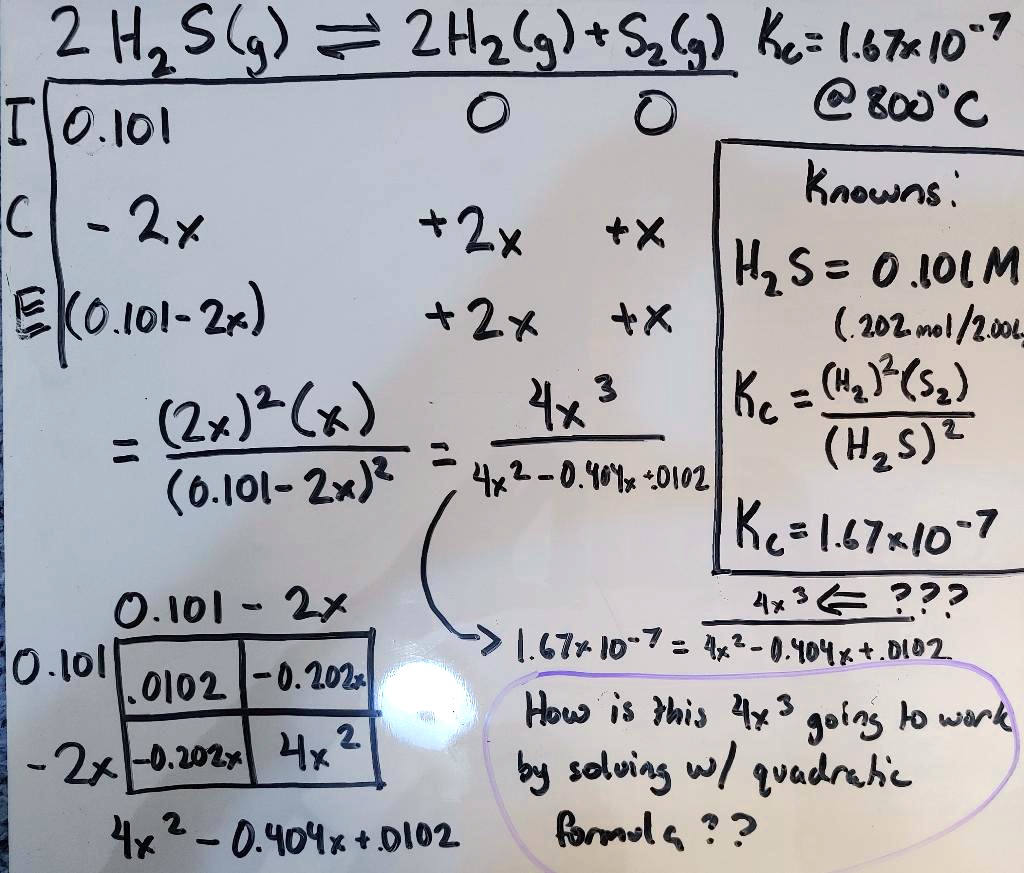 2 H₂S(g) ⇌ 2H₂(g) + S₂(g) Kc = 1.67x10⁻⁷
@ 800°C
I 0.101 0 0
C - 2x +2x +x
E (0.101-2x) +2x +x
Knowns:
H₂S = 0.101M
(.202 mol/2.00L
Kc = (H₂)²(S₂) / (H₂S)²
Kc = 1.67x10⁻⁷
= (2x)²(x) / (0.101-2x)² = 4x³ / 4x² - 0.404x +.0102
0.101 - 2x
0.101 .0102 -0.202x
-2x -0.202x 4x²
4x² - 0.404x + .0102
1.67x10⁻⁷ = 4x³ ⇐ ??? / 4x² - 0.404x + .0102
How is this 4x³ going to work
by solving w/ quadratic
formula ??